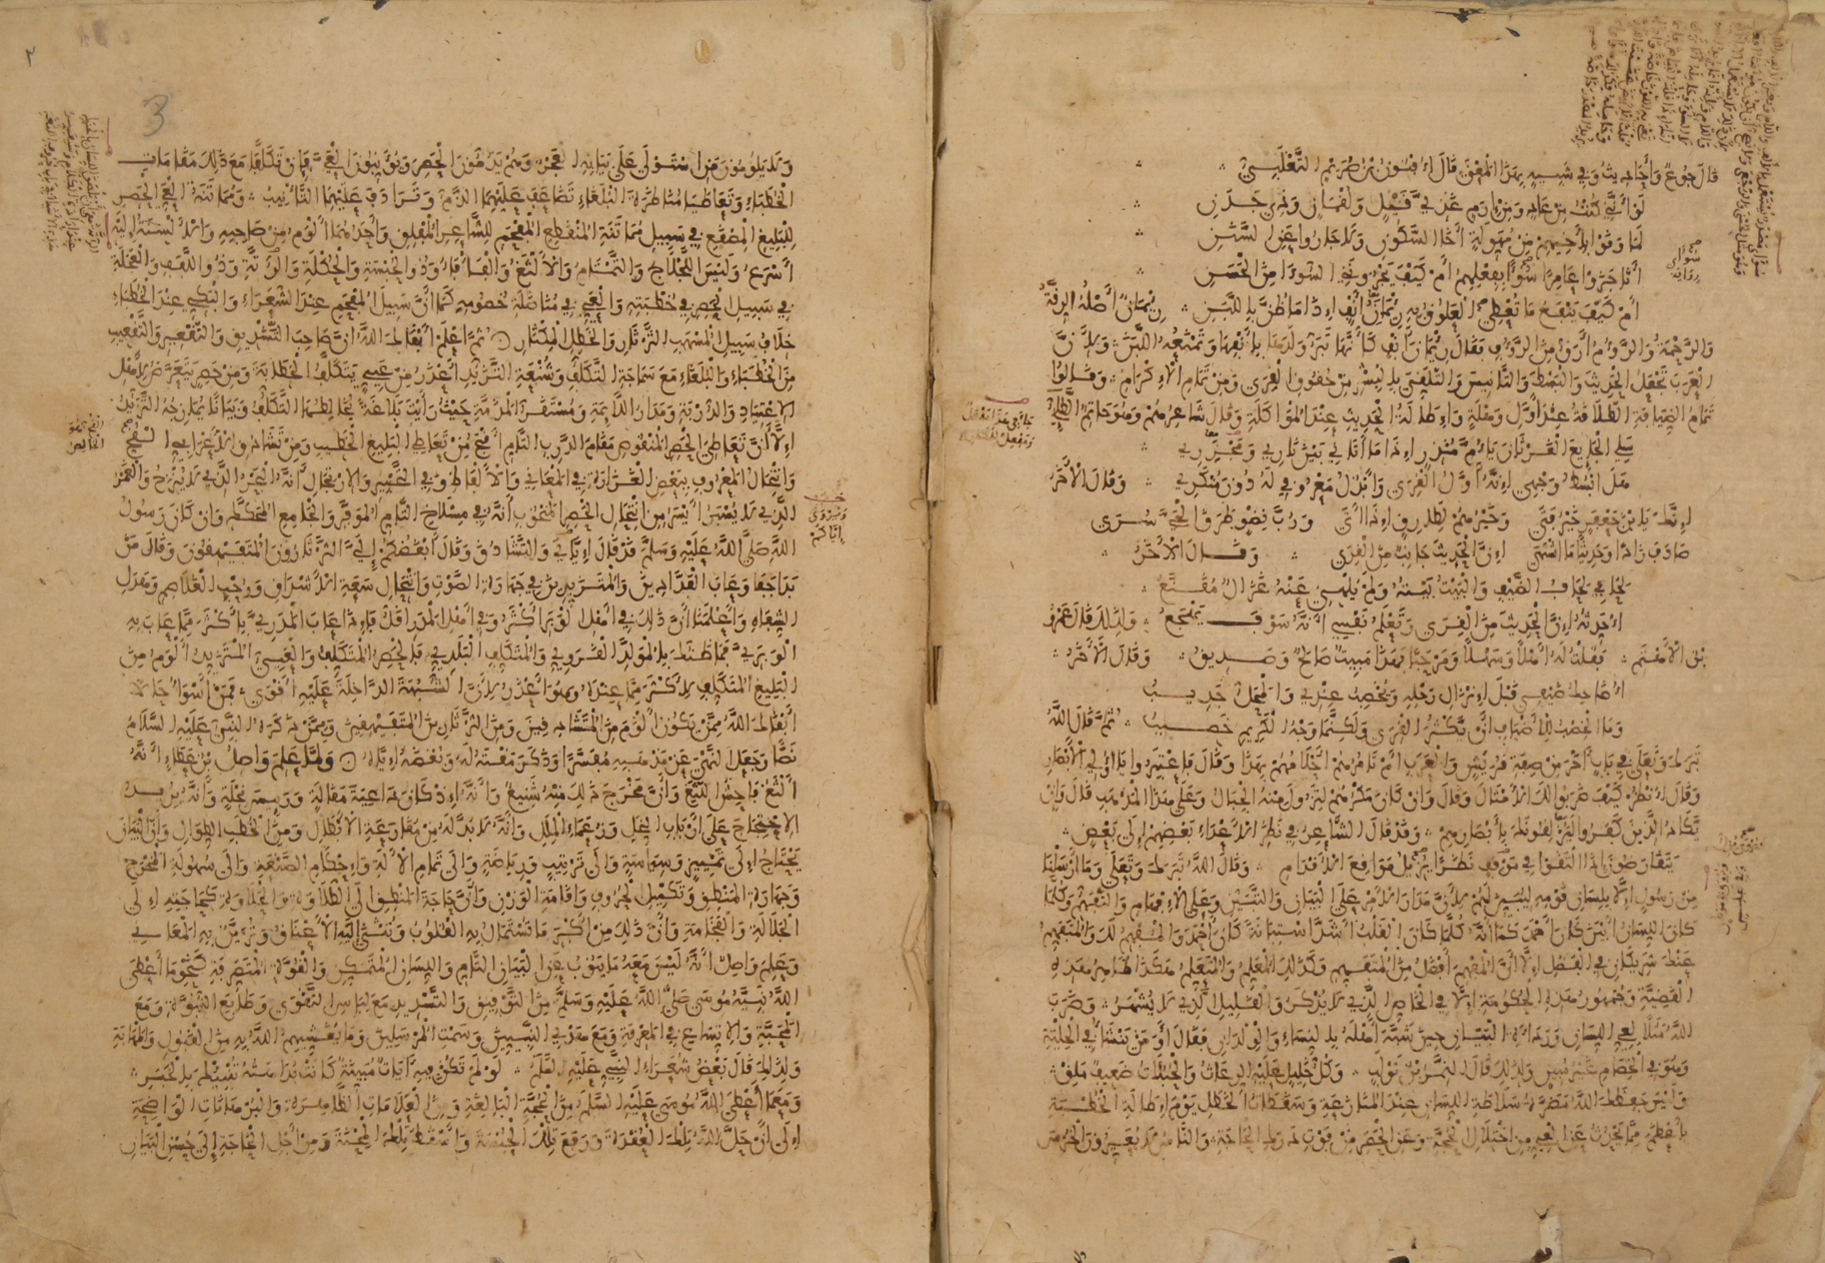 قال جوع وأحاديث وفي شبيه بهذا المعنى قال أفنون بن صريم التغلبي
لو أنني كنت من عاد ومن إرم غذي قيل ولقمان وذي جدن
لما وقوا بأخيهم من مهولة أخا السكون ولا حادوا عن السنن
أنى جزوا عامرا سوءا بفعلهم أم كيف يجزونني السوءى من الحسن
أم كيف ينفع ما تعطي العلوق به رئمان أنف إذا ما ضن باللبن رئمان أصله الرقة
والرحمة والرؤوم أرق من الرؤوف فقال رئمان أنف كأنها تبر ولدها بأنفها وتمنعه اللبن ولأن
العرب تجعل الحديث والبسط والتأنيس والتلقي بالبشر من حقوق القرى ومن تمام الإكرام وقالوا
تمام الضيافة الطلاقة عند أول وهلة وإطالة الحديث عند المواكلة وقال شاعرهم وهو حاتم الطائي
سلي الجايع الغرثان يا أم منذر إذا ما أتاني بين ناري ومجزري
هل ابسط وجهي إنه أول القرى وأبذل معروفي له دون منكري وقال الآخر
إنك يا بن جعفر خير فتى وخيرهم لطارق إذا أتى ورب نضو طرق الحي سرى
صادف زادا وحديثا ما اشتهى إن الحديث جانب من القرى وقال الآخر
لحافي لحاف الضيف والبيت بيته ولم يلهني عنه غزال مقنع
أحدثه إن الحديث من القرى وتعلم نفسي أنه سوف يهجع ولذلك قال عمرو
بن الأهتم فقلت له أهلا وسهلا ومرحبا فهذا مبيت صالح وصديق وقال الآخر
أضاحك ضيفي قبل إنزال رحله ويخصب عندي والمحل جديب
وما الخصب للأضياف أن يكثر القرى ولكنما وجه الكريم خصيب ثم قال الله
تبارك وتعالى في باب آخر من صفة قريش والعرب أم تأمرهم أحلامهم بهذا وقال فاعتبروا يا أولي الأبصار
وقال انظر كيف ضربوا لك الأمثال وقال وإن كان مكرهم لتزول منه الجبال وعلى هذا المذهب قال وإن
يكاد الذين كفروا ليزلقونك بأبصارهم وقد قال الشاعر في نظر الأعداء بعضهم إلى بعض
يتقارضون إذا التقوا في موقف نظرا يزيل مواقع الأقدام وقال الله تبارك وتعالى وما أرسلنا
من رسول إلا بلسان قومه ليبين لهم لأن مدار الأمر على البيان والتبيين وعلى الإفهام والتفهم وكلما
كان اللسان أبين كان أحمد كما أنه كلما كان القلب أشد استبانة كان أحمد والمفهم لك والمتفهم
عنك شريكان في الفضل إلا أن المفهم أفضل من المتفهم وكذلك المعلم والمتعلم هكذا ظاهر هذه
القضية وجمهور هذه الحكومة إلا في الخاص الذي لا يذكر والقليل الذي لا يشهر وضرب
الله مثلا لعي اللسان ورداءة البيان حين شبه أهله بالنساء والولدان فقال أو من ينشأ في الحلية
وهو في الخصام غير مبين ولذلك قال النمر بن تولب وكل خليل عليه الرعاث والحبلات ضعيف ملق
وليس حفظك الله مضرة سلاطة اللسان عند المنازعة وسقطات الخطل يوم إطالة الخطبة
بأعظم مما يحدث عن العي من اختلال الحجة وعن الحصر من فوت درك الحاجة والناس لا يعيرون الخرس
٢
3
ولا يلومون من استولى على بيانه العجز وهم يذمون الحصر ويؤنبون العي فإن تكلفا مع ذلك مقامات
الخطباء وتعاطيا مناظرة البلغاء تضاعف عليهما الذم وترادف عليهما التأنيب ومماتنة العي الحصر
للبليغ المصقع في سبيل مماتنة المنقطع المفحم للشاعر المفلق وأحدهما ألوم من صاحبه والألسنة إليه
أسرع وليس اللجلاج والتمتام والألثغ والفأفاء وذو الحبسة والحكلة والرتة وذو اللفف والعجلة
في سبيل الحصر في خطبته والعي في مناضلة خصومه كما أن سبيل المفحم عند الشعراء والبكي عند الخطباء
خلاف سبيل المسهب الثرثار والخطل المكثار ثم اعلم أبقاك الله أن صاحب التشديق والتقعير والتقعيب
من الخطباء والبلغاء مع سماجة التكلف وشنعة التزيد أعذر من عيي يتكلف الخطابة ومن حصر يتعرض لأهل
الاعتياد والدربة ومدار اللائمة ومستقر المذمة حيث رأيت بلاغة يخالطها التكلف وبيانا يمازجه التزيد
إلا أن تعاطي الحصر المنقوص مقام الدرب التام أقبح من تعاطي البليغ الخطيب ومن تشادق الأعرابي القح
وانتحال المعروف ببعض الغزارة في المعاني والألفاظ وفي التحبير والارتجال أنه البحر الذي لا ينزح والغمر
الذي لا يسبر أيسر من انتحال الحصر المنخوب أنه في مسلاخ التام الموفر والجامع المحكك وإن كان رسول
الله صلى الله عليه وسلم قد قال إياي والتشادق وقال أبغضكم إلي الثرثارون المتفيهقون وقال من
بدا جفا وعاب الفدادين والمتزيدين في جهارة الصوت وانتحال سعة الأشداق ورحب الغلاصم وهدل
الشفاه وأعلمنا أن ذلك في أهل الوبر أكثر وفي أهل المدر أقل فإذا عاب المدري بأكثر مما عاب به
الوبري فما ظنك بالمولد القروي والمتكلف البلدي فالحصر المتكلف والعيي المتزيد ألوم من
البليغ المتكلف لأكثر مما عنده وهو أعذر لأن الشبهة الداخلة عليه أقوى فمن أسوأ حالا
أبقاك الله ممن يكون ألوم من المتشادقين ومن الثرثارين المتفيهقين وممن ذكره النبي عليه السلام
نصا وجعل النهي عن مذهبه مفسرا وذكر مقته له وبغضه إياه ولما علم واصل بن عطاء أنه
ألثغ فاحش اللثغ وأن مخرج ذلك منه شنيع وأنه إذ كان داعية مقالة ورئيس نحلة وأنه يريد
الاحتجاج على أرباب النحل وزعماء الملل وأنه لا بد له من مقارعة الأبطال ومن الخطب الطوال وأن البيان
يحتاج إلى تمييز وسياسة وإلى ترتيب ورياضة وإلى تمام الآلة وإحكام الصنعة وإلى سهولة المخرج
وجهارة المنطق وتكميل الحروف وإقامة الوزن وأن حاجة المنطق إلى الطلاوة والحلاوة كحاجته إلى
الجلالة والفخامة وأن ذلك من أكثر ما تستمال به القلوب وتنثني إليه الأعناق وتزين به المعاني
وعلم واصل أنه ليس معه ما ينوب عن البيان التام واللسان المتمكن والقوة المتصرفة كنحو ما أعطى
الله نبيه موسى صلى الله عليه وسلم من التوفيق والتسديد مع لباس التقوى وطابع النبوة ومع
المحبة والاتساع في المعرفة ومع هدي النبيين وسمت المرسلين وما يغشيهم الله به من القبول والمهابة
ولذلك قال بعض شعراء النبي عليه السلم لو لم تكن فيه آيات مبينة كانت بداهته تنبيك بالخبر
ومع ما أعطى الله موسى عليه السلم من الحجة البالغة ومن العلامات الظاهرة والبرهانات الواضحة
إلى أن حل الله تلك العقدة ورفع تلك الحبسة وأسقط تلك المحنة ومن أجل الحاجة إلى حسن البيان